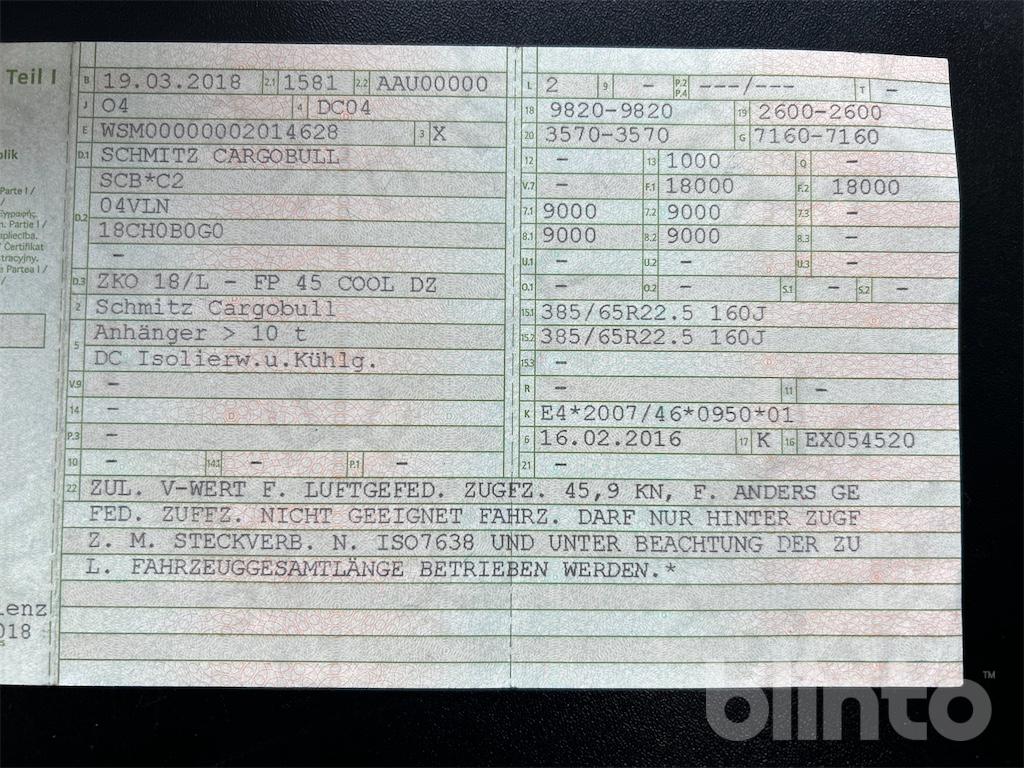 Teil I
B 19.03.2018 2.1 1581 2.2 AAU00000
J 04 4 DC04
E WSM00000002014628 3 X
D.1 SCHMITZ CARGOBULL
SCB*C2
D.2 04VLN
18CH0B0G0
-
D.3 ZKO 18/L - FP 45 COOL DZ
2 Schmitz Cargobull
5 Anhänger > 10 t
DC Isolierw.u.Kühlg.
V.9 -
14 -
P.3 -
10 - 14.1 - P.1 -
L 2 9 - P.2 P.4 ---/--- T -
18 9820-9820 19 2600-2600
20 3570-3570 G 7160-7160
12 - 13 1000 Q -
V.7 - F.1 18000 F.2 18000
7.1 9000 7.2 9000 7.3 -
8.1 9000 8.2 9000 8.3 -
U.1 - U.2 - U.3 -
O.1 - O.2 - S.1 - S.2 -
15.1 385/65R22.5 160J
15.2 385/65R22.5 160J
15.3 -
R - 11 -
K E4*2007/46*0950*01
6 16.02.2016 17 K 16 EX054520
21 -
22 ZUL. V-WERT F. LUFTGEFED. ZUGFZ. 45,9 KN, F. ANDERS GE
FED. ZUFFZ. NICHT GEEIGNET FAHRZ. DARF NUR HINTER ZUGF
Z. M. STECKVERB. N. ISO7638 UND UNTER BEACHTUNG DER ZU
L. FAHRZEUGGESAMTLÄNGE BETRIEBEN WERDEN.*
blik
Parte I /
Εγγραφής.
n. Partie I /
apliecība.
/ Certifikat
tracyjny.
e Partea I /
/
lenz
018
blinto™